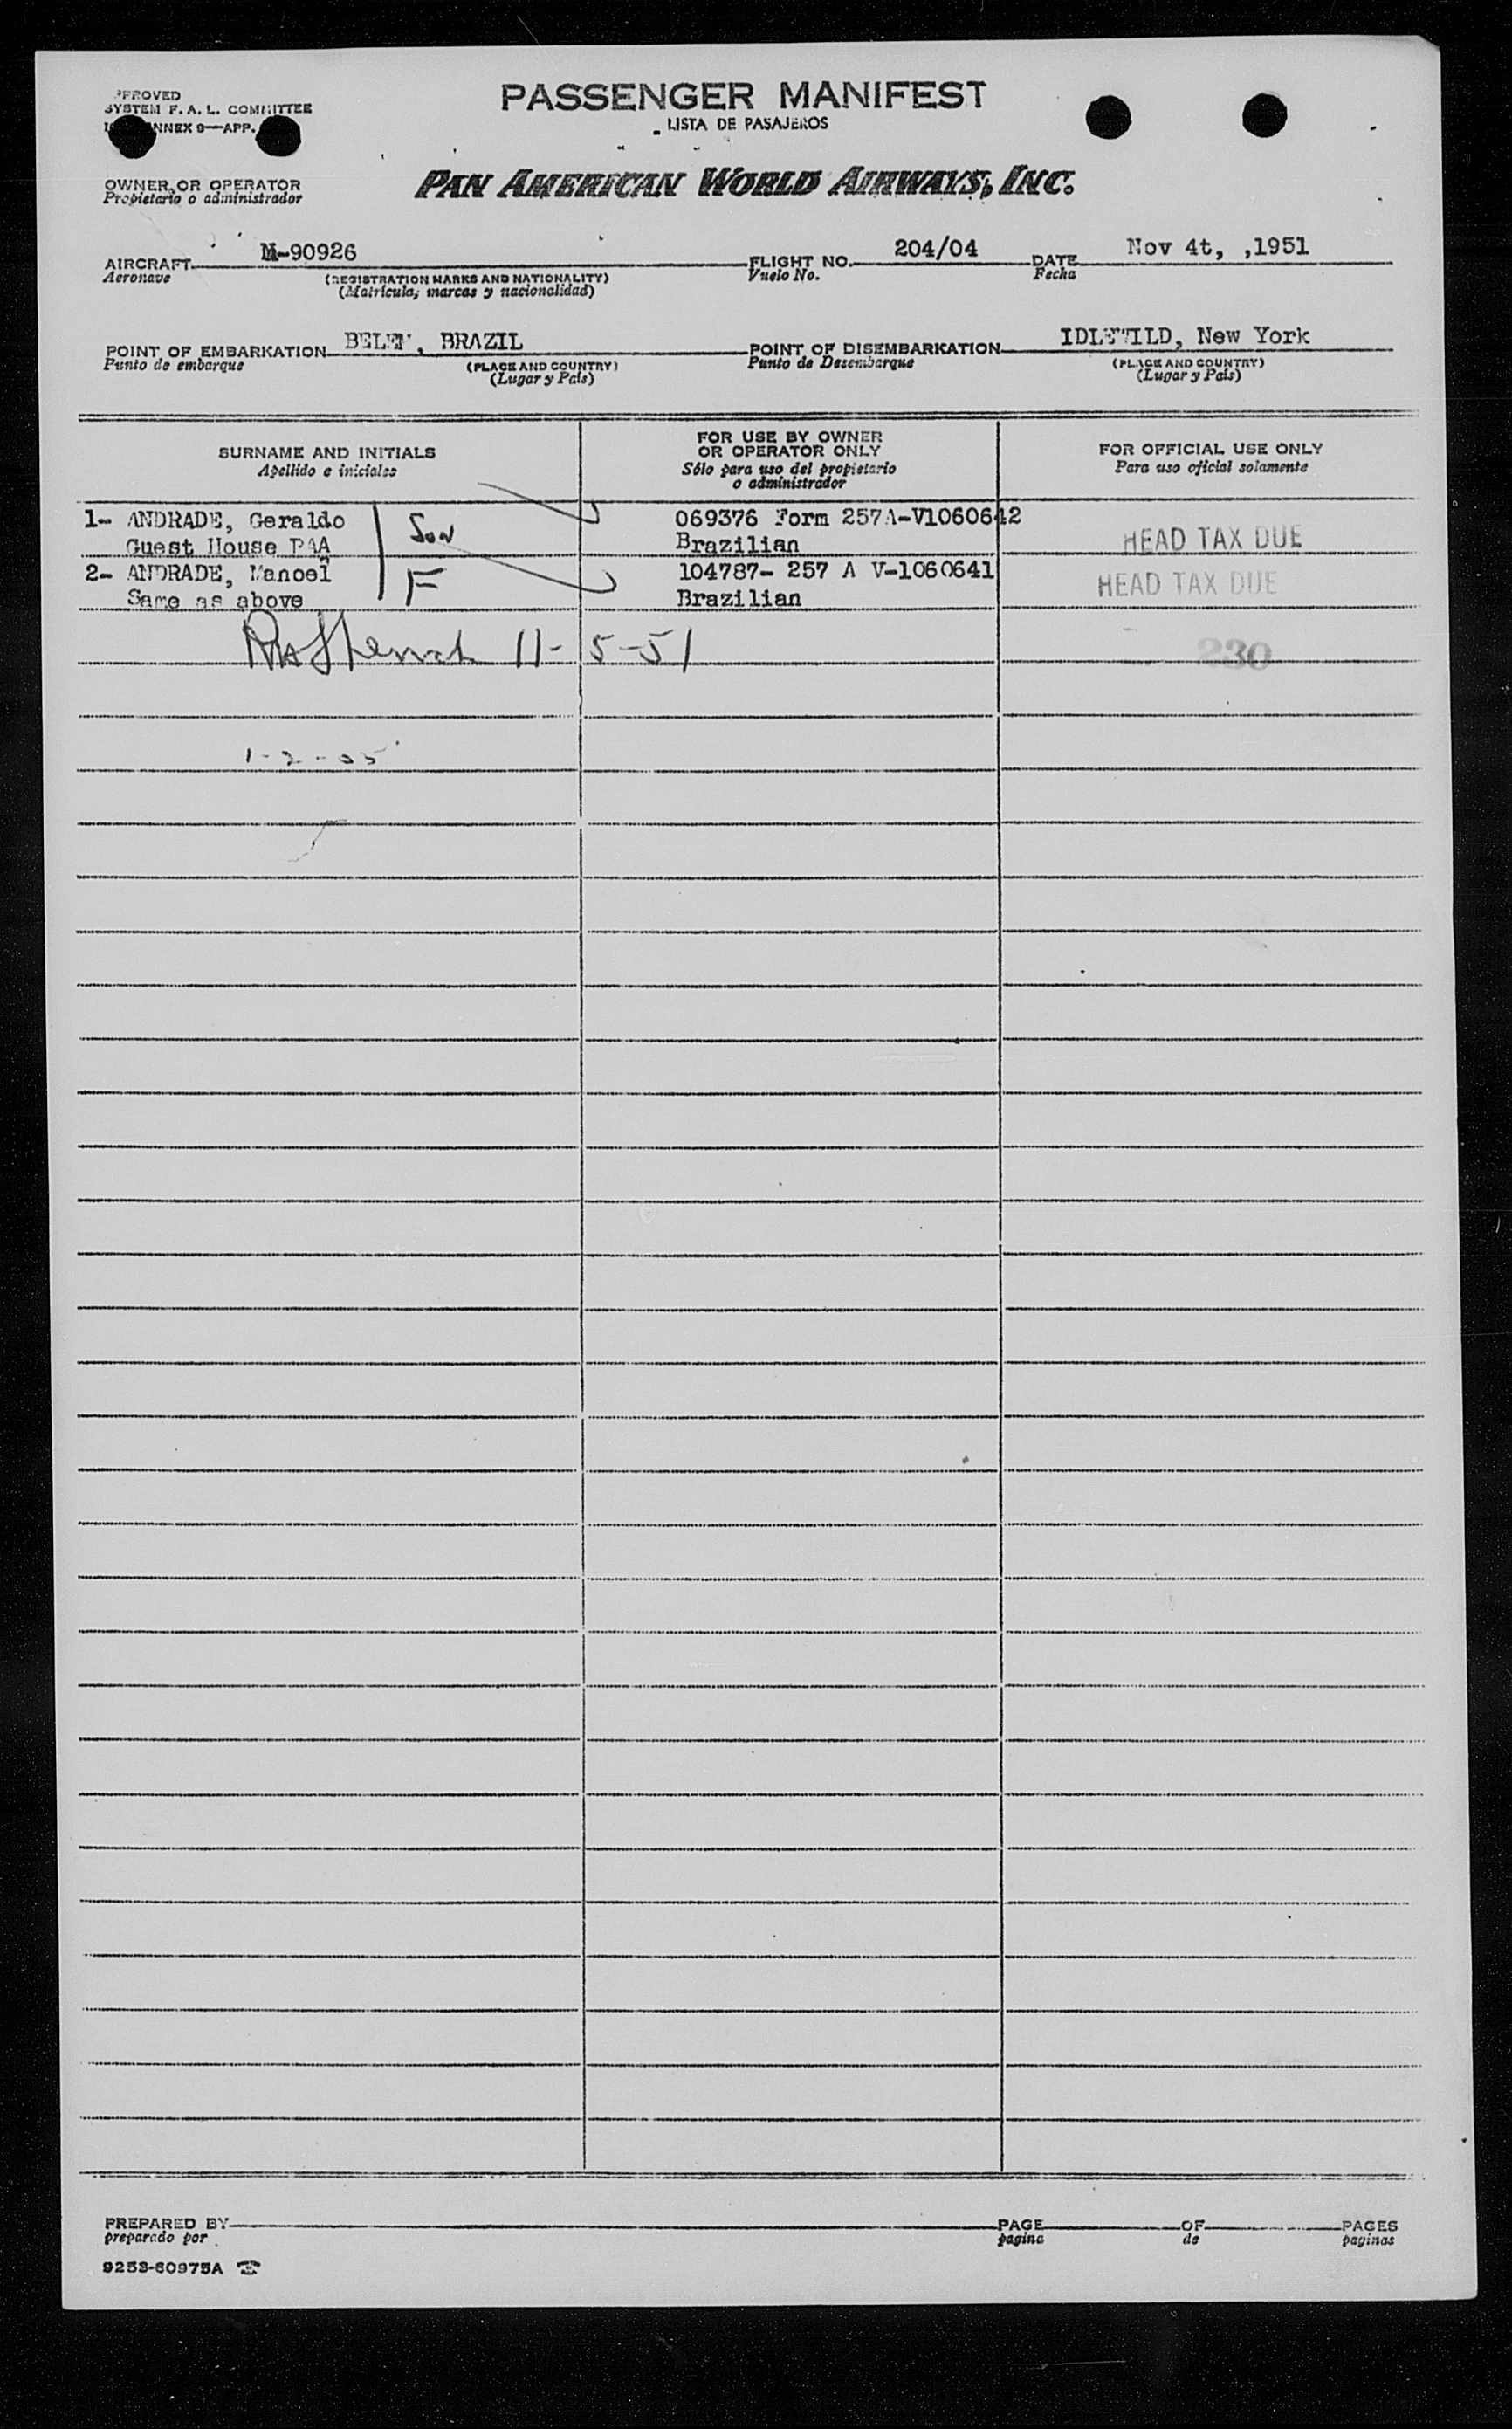 PASSENGER MANIFEST
LISTA DE PASAJEROS
PPROVED
SYSTEM F. A. L. COMMITTEE
NNEX 9—APP.
OWNER OR OPERATOR
Propietario o administrador
PAN AMERICAN WORLD AIRWAYS, INC.
AIRCRAFT M-90926
Aeronave
(REGISTRATION MARKS AND NATIONALITY)
(Matrícula, marcas y nacionalidad)
FLIGHT NO. 204/04
Vuelo No.
DATE Nov 4t, ,1951
Fecha
POINT OF EMBARKATION BELEM, BRAZIL
Punto de embarque
(PLACE AND COUNTRY)
(Lugar y País)
POINT OF DISEMBARKATION IDLEWILD, New York
Punto de Desembarque
(PLACE AND COUNTRY)
(Lugar y País)
SURNAME AND INITIALS
Apellido e iniciales
FOR USE BY OWNER
OR OPERATOR ONLY
Sólo para uso del propietario
o administrador
FOR OFFICIAL USE ONLY
Para uso oficial solamente
1- ANDRADE, Geraldo Son 069376 Form 257A-V1060642
Guest House PAA Brazilian HEAD TAX DUE
2- ANDRADE, Manoel F 104787- 257 A V-1060641 HEAD TAX DUE
Same as above Brazilian
11-5-51 230
PREPARED BY
preparado por
PAGE OF PAGES
pagina de paginas
9253-60975A